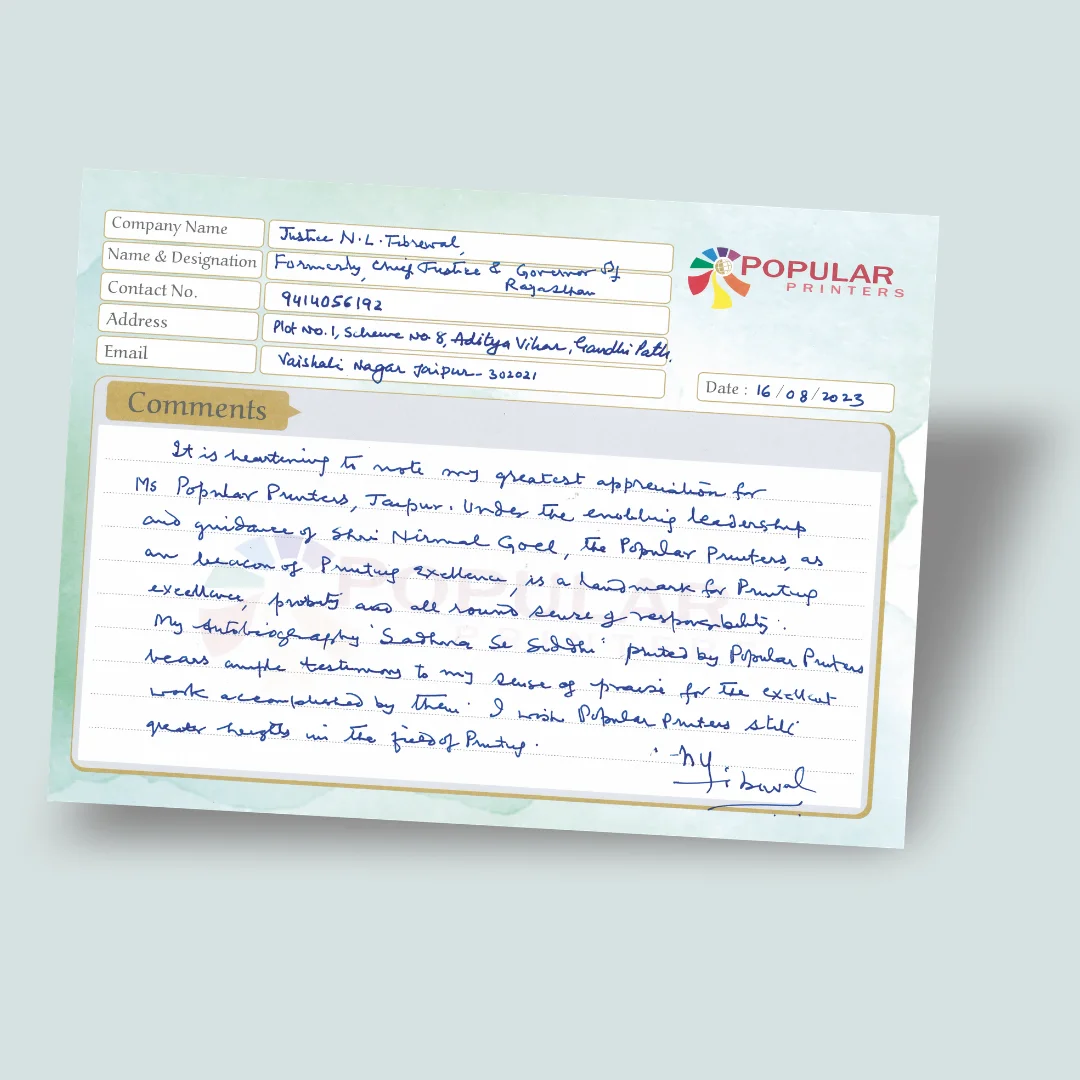 Company Name
Justice N.L. Tibrewal,
Name & Designation
Formerly, Chief Justice & Governor of
Rajasthan
Contact No.
9414056192
Address
Plot No. 1, Scheme No 8, Aditya Vihar, Gandhi Path,
Email
Vaishali Nagar Jaipur - 302021
POPULAR
PRINTERS
Date : 16/08/2023
Comments
It is heartening to note my greatest appreciation for
Ms Popular Printers, Jaipur. Under the enobling leadership
and guidance of Shri Nirmal Goel, the Popular Printers, as
an beacon of Printing Excellence, is a landmark for Printing
excellence, probity and all round sense of responsibility.
My Autobiography 'Sadhna Se Siddhi' printed by Popular Printers
bears ample testimony to my sense of praise for the excellent
work accomplished by them. I wish Popular Printers still
greater heights in the field of Printing.
Tibrewal
POPULAR
PRINTERS